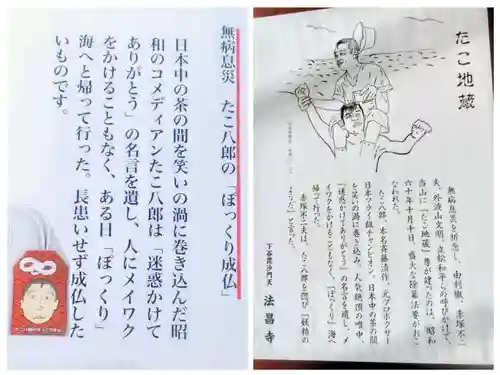 無病息災　たこ八郎の「ぽっくり成仏」
日本中の茶の間を笑いの渦に巻き込んだ昭
和のコメディアンたこ八郎は「迷惑かけて
ありがとう」の名言を遺し、人にメイワク
をかけることもなく、ある日「ぽっくり」
海へと帰って行った。長患いせず成仏した
いものです。
たこ地蔵
無病息災を祈念し、由利徹、赤塚不二
夫、外波山文明、立松和平らの呼びかけで、
当山に「たこ地蔵」尊が建ったのは、昭和
六十年十月十日、盛大な除幕法要がおこ
なわれた。
たこ八郎、本名斉藤清作、元プロボクサー
日本フライ級チャンピオン。日本中の茶の間
を笑いの渦に巻き込み、人気絶頂の最中、
「迷惑かけてありがとう」の名言を遺し、メ
イワクをかけることもなく、「ぽっくり」海へ
帰って行った。
赤塚不二夫は、たこ八郎を偲び「妖精の
ような」と言った。
下谷毘沙門天　法昌寺